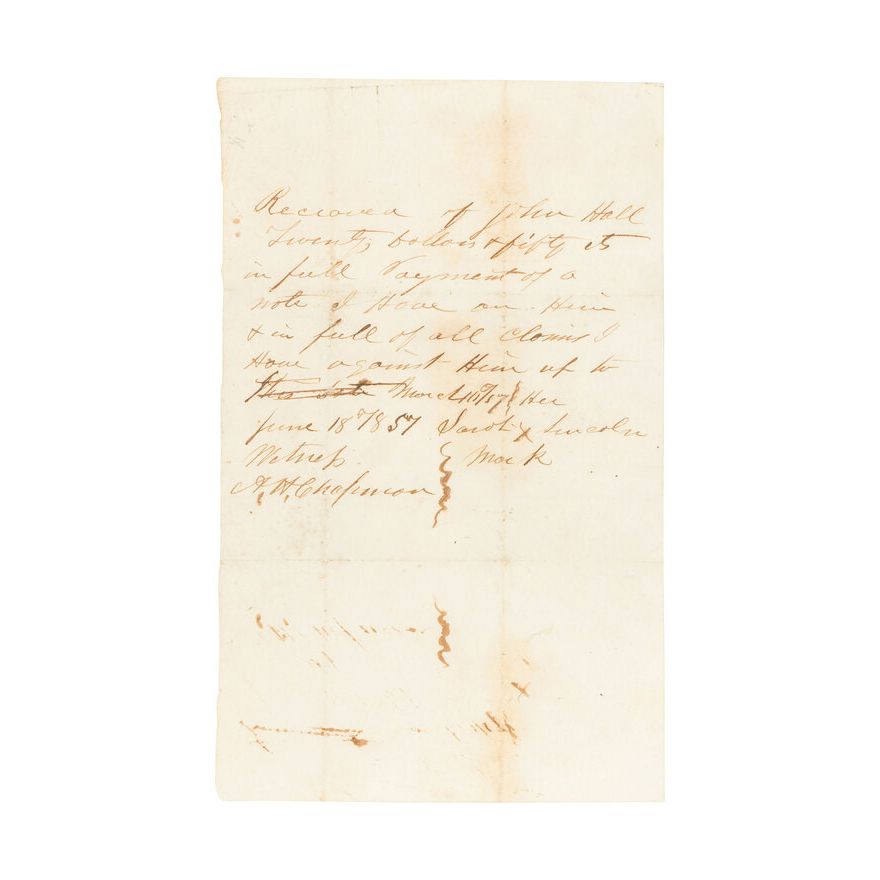 Recieved of John Hall
Twenty Dollars & fifty cts
in full Payment of a
note I Have on Him
& in full of all claims I
Have against Him up to
this date March Her
June 18th 1857 Sarah X Lincoln
Witness Mark
A. H. Chapman